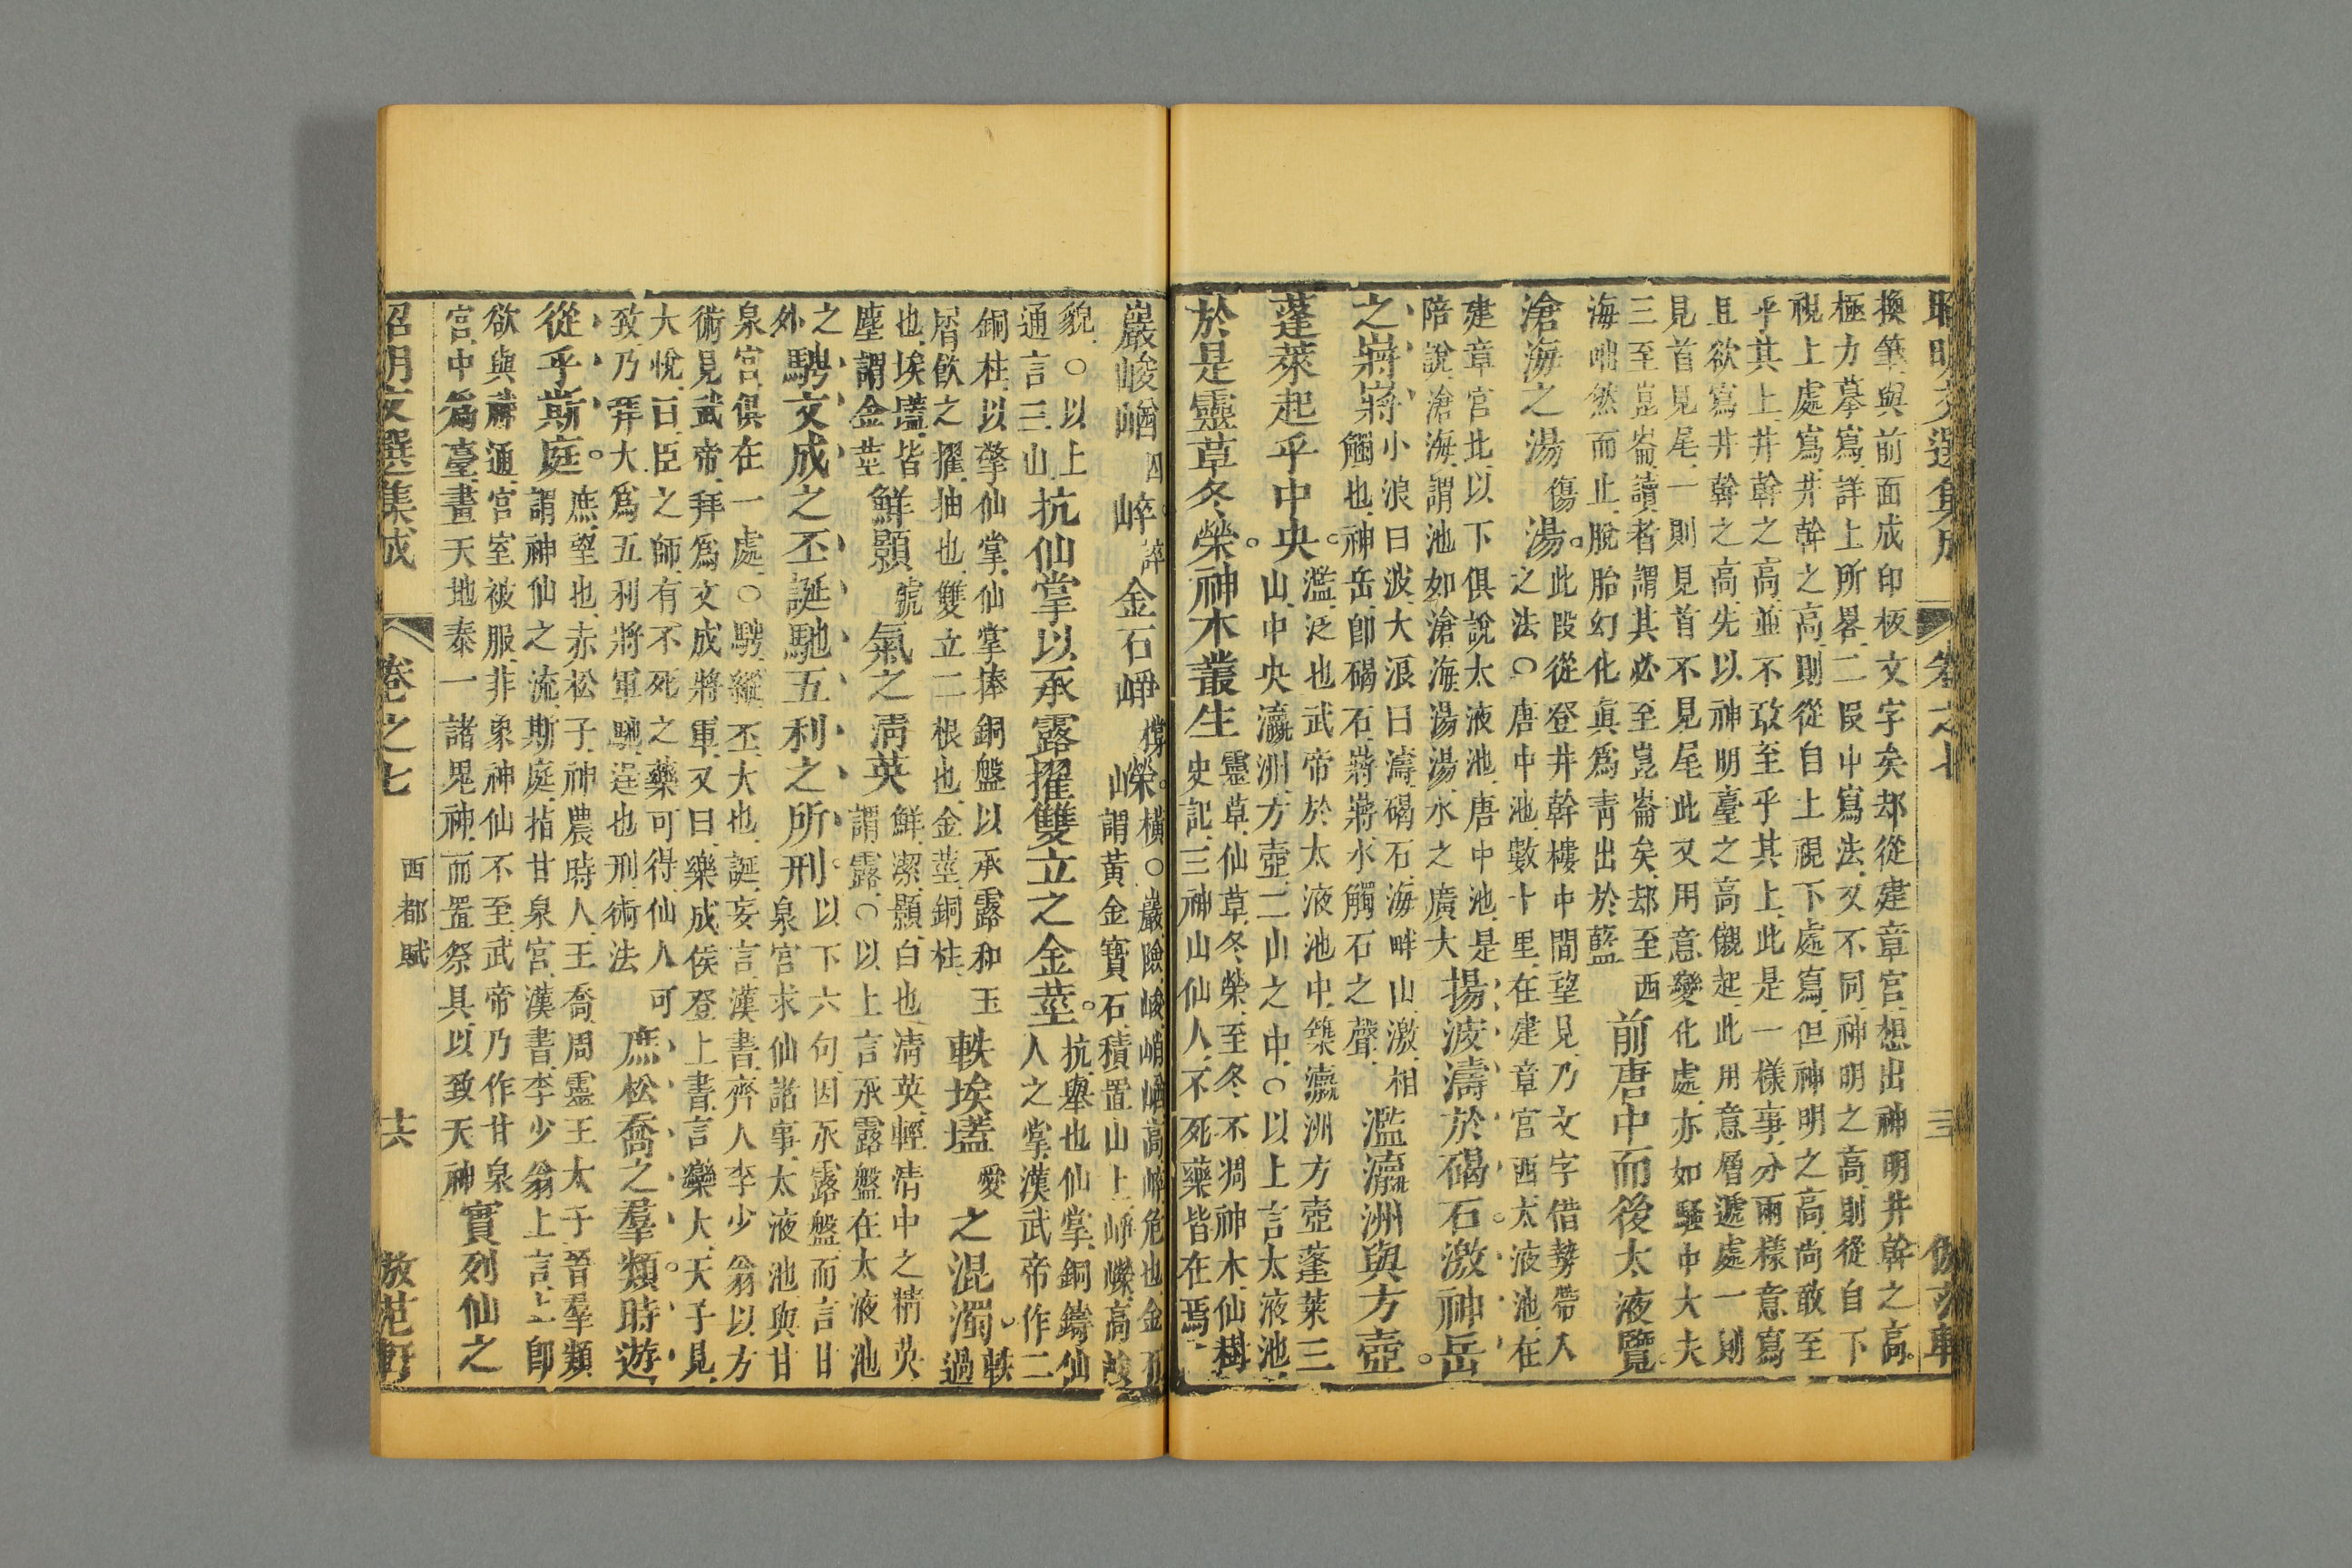 昭明文選集成 卷之七
換筆與前面成印板文字矣却從建章宮想出神明井幹之高
極力摹寫詳上所畧二段中寫法又不同神明之高則從自下
視上處寫井幹之高則從自上視下處寫但神明之高尚敢至
乎其上井幹之高並不敢至乎其上此是一樣事分兩樣意寫
且欲寫井幹之高先以神明臺之高儭起此用意層遞處一則
見首見尾一則見首不見尾此又用意變化處亦如騷中大夫
三至崑崙讀者謂其必至崑崙矣却至西
海而止脫胎幻化眞爲靑出於藍
前唐中而後太液覽
滄海之湯傷湯
此段從登井幹樓中間望見乃文字借勢帶入
之法○唐中池數十里在建章宮西太液池在
建章宮北以下俱說太液池唐中池是
陪說滄海謂池如滄海湯湯水之廣大
揚波濤於碣石激神岳
之嶈嶈
小浪曰波大浪曰濤碣石海畔山激相
觸也神岳卽碣石嶈嶈水觸石之聲
濫瀛洲與方壺
蓬萊起乎中央
濫泛也武帝於太液池中築瀛洲方壺蓬萊三
山中央瀛洲方壺二山之中○以上言太液池
於是靈草冬榮神木叢生
靈草仙草冬榮至冬不凋神木仙樹
史記三神山仙人不死藥皆在焉
巖峻崷崪金石崢嶸
橫○巖險峻崷高崪危也金石
謂黃金寶石積置山上崢嶸高峻
貌○以上
通言三山
抗仙掌以承露擢雙立之金莖
抗舉也仙掌銅鑄仙
人之掌漢武帝作二
銅柱以擎仙掌仙掌捧銅盤以承露和玉
屑飮之擢抽也雙立二根也金莖銅柱
軼埃壒愛之混濁
軼過
也埃壒皆
塵謂金莖
鮮顥號氣之淸英
鮮潔顥白也淸英輕淸中之精英
謂露○以上言承露盤在太液池
之
外
騁文成之丕誕馳五利之所刑
以下六句因承露盤而言甘
泉宮求仙諸事太液池與甘
泉宮俱在一處○騁縱丕大也誕妄言漢書齊人李少翁以方
術見武帝拜爲文成將軍又曰樂成侯登上書言欒大天子見
大悅曰臣之師有不死之藥可得仙人可
致乃拜大爲五利將軍馳逞也刑術法
庶松喬之羣類時遊
從乎斯庭
庶望也赤松子神農時人王喬周靈王太子晉羣類
謂神仙之流斯庭指甘泉宮漢書李少翁上言上卽
欲與神通宮室被服非象神仙不至武帝乃作甘泉
宮中爲臺畫天地泰一諸鬼神而置祭具以致天神
實列仙之
昭明文選集成 卷之七 西都賦 十六 倣范軒